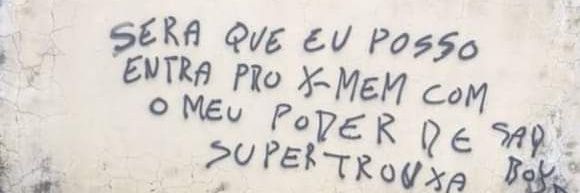 SERA QUE EU POSSO
ENTRA PRO X-MEM COM
O MEU PODER DE
SUPERTROUXA